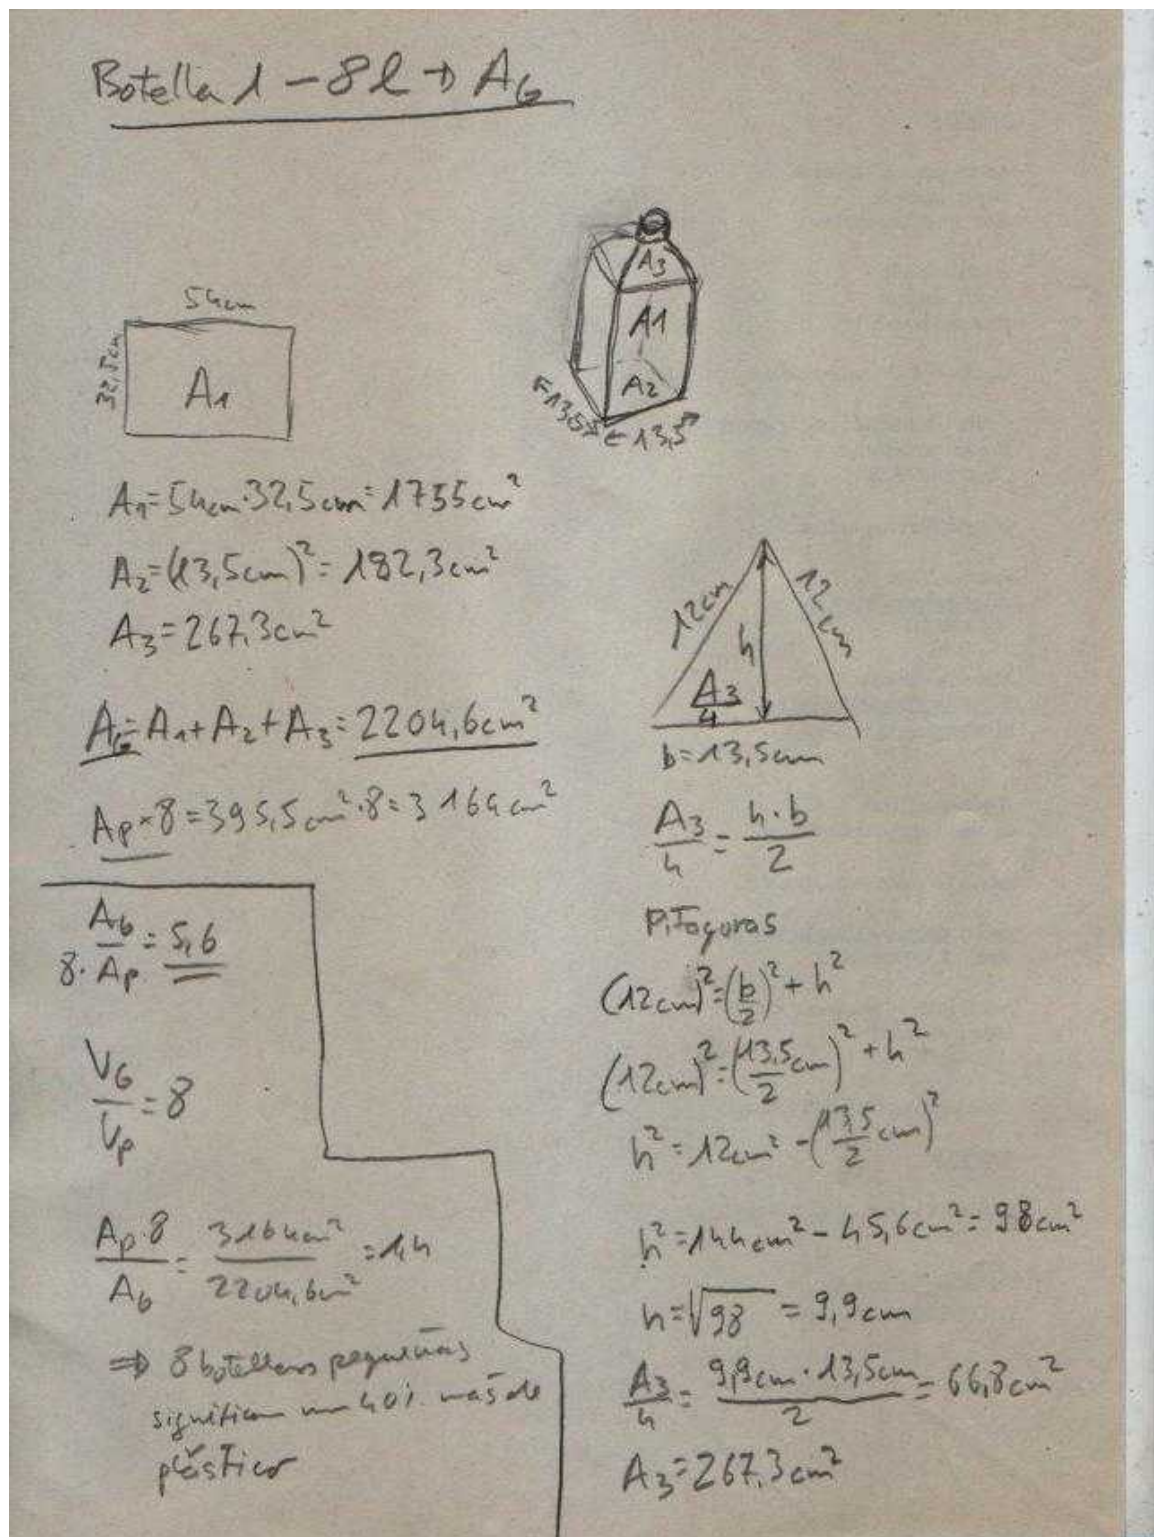 Botella 1 - 8l → A_G
54cm
32,5cm
A1
A3
A1
A2
←13,5→
←13,5→
A1=54cm·32,5cm=1755cm²
A2=(13,5cm)²=182,3cm²
A3=267,3cm²
A_G=A1+A2+A3=2204,6cm²
A_P×8=395,5cm²·8=3164cm²
A_G/(8·A_P)=5,6
V_G/V_P=8
A_P·8/A_G=3164cm²/2204,6cm²=1,4
⇒ 8 botellas pequeñas
significan un 40% más de
plástico
12cm
12cm
h
A3/4
b=13,5cm
A3/4=h·b/2
Pitagoras
(12cm)²=(b/2)²+h²
(12cm)²=(13,5/2 cm)²+h²
h²=12cm²-(13,5/2 cm)²
h²=144cm²-45,6cm²=98cm²
h=√98=9,9cm
A3/4=9,9cm·13,5cm/2=66,8cm²
A3=267,3cm²